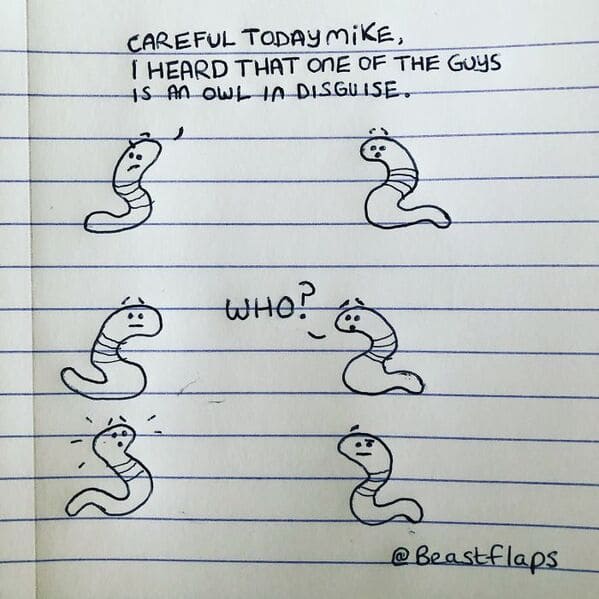 CAREFUL TODAY MIKE,
I HEARD THAT ONE OF THE GUYS
IS AN OWL IN DISGUISE.
WHO?
@Beastflaps